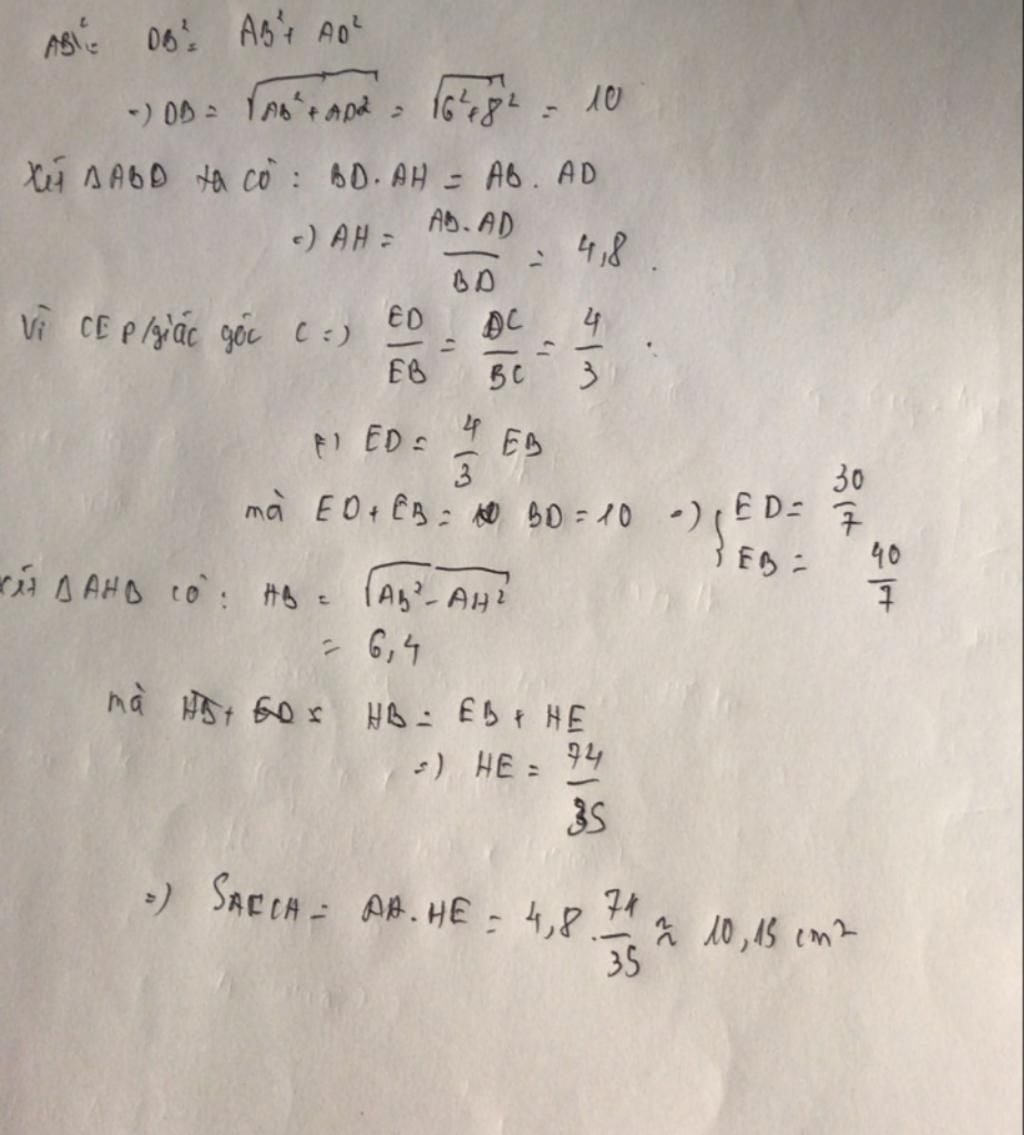 AB² = DB² = AB² + AD²
=) DB = √(AB² + AD²) = √(6² + 8²) = 10
Xét ΔABD ta có : BD. AH = AB . AD
=) AH = AB. AD / BD = 4,8 .
Vì CE p/giác góc C =) ED/EB = DC/BC = 4/3 .
=) ED = 4/3 EB
mà ED + EB = BD = 10 =) { ED = 30/7
EB = 40/7
Xét ΔAHB có : HB = √(AB² - AH²)
= 6,4
mà HB = EB + HE
=) HE = 74/35
=) SAECH = AH. HE = 4,8 . 74/35 ≈ 10,15 cm²